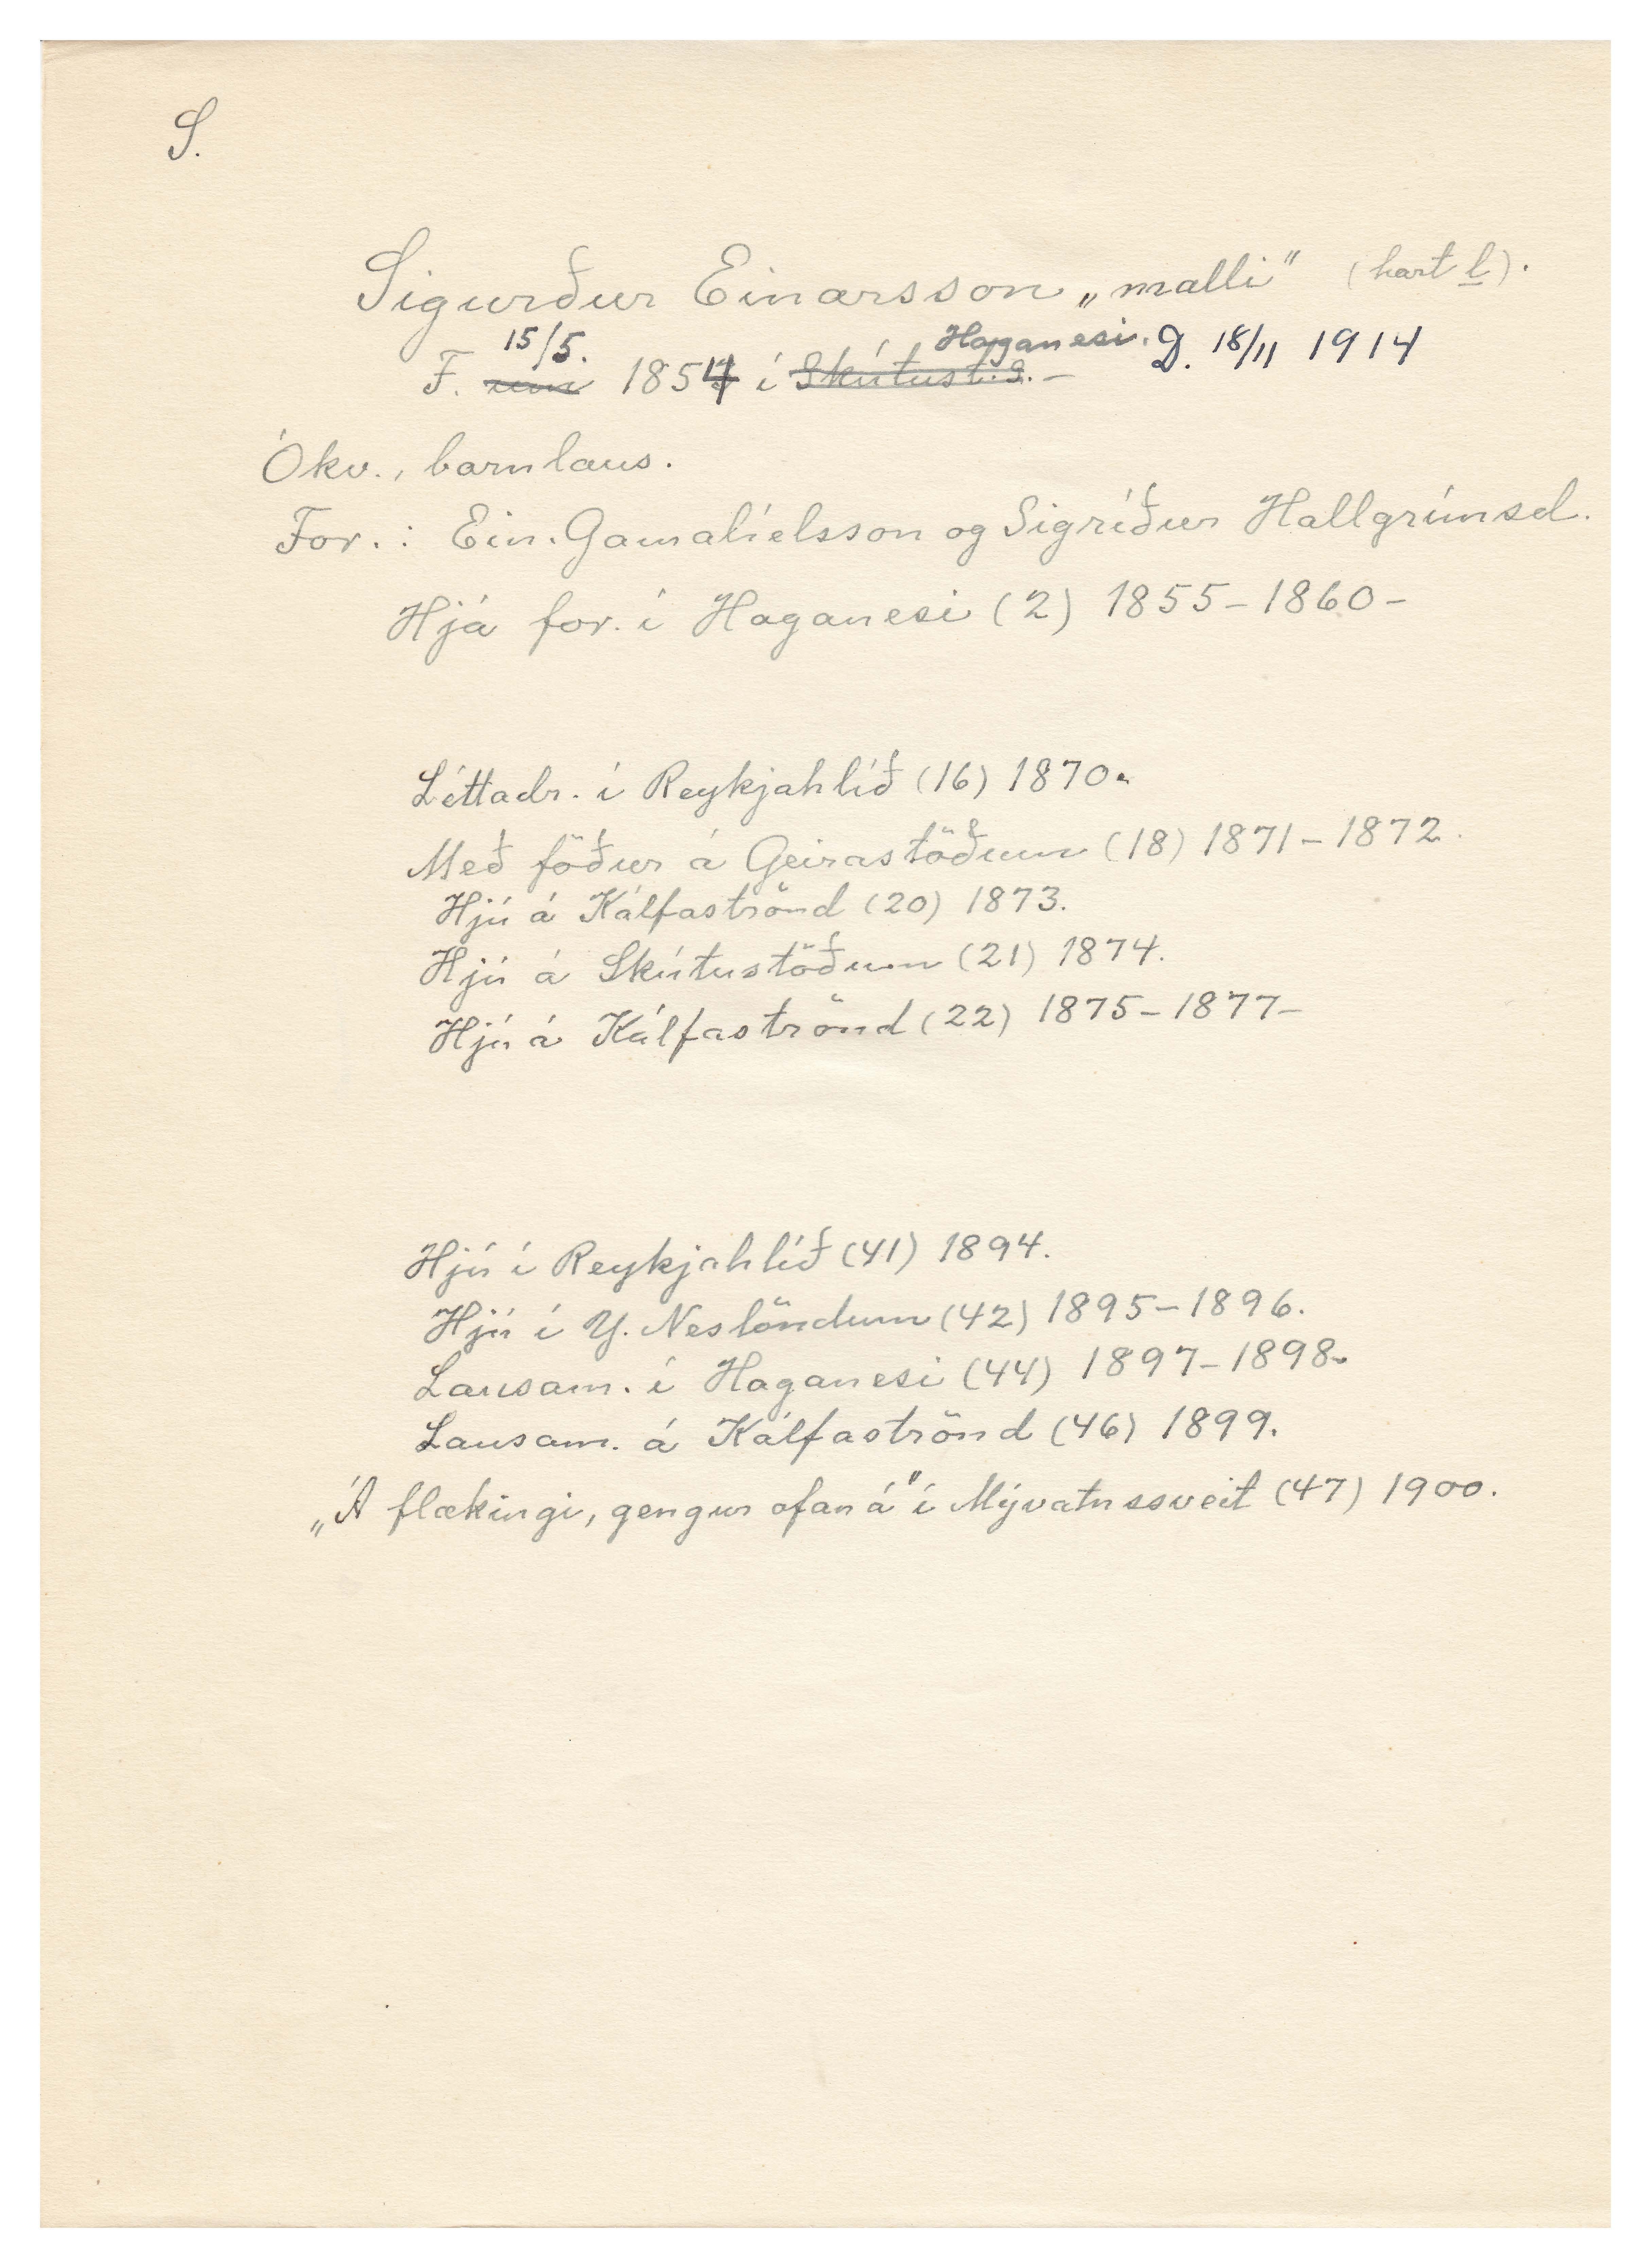 S.
Sigurður Einarsson „malli" (hart l).
15/5. Haganesi. D. 18/11 1914
F. um 1854 í Skútust.s. –
Ókv., barnlaus.
For.: Ein. Gamalíelsson og Sigríður Hallgrímsd.
Hjá for. í Haganesi (2) 1855–1860–
Léttadr. í Reykjahlíð (16) 1870.
Með föður á Geirastöðum (18) 1871–1872.
Hjú á Kálfaströnd (20) 1873.
Hjú á Skútustöðum (21) 1874.
Hjú á Kálfaströnd (22) 1875–1877–
Hjú í Reykjahlíð (41) 1894.
Hjú í Y. Neslöndum (42) 1895–1896.
Lausam. í Haganesi (44) 1897–1898.
Lausam. á Kálfaströnd (46) 1899.
„Á flækingi, gengur ofan á" í Mývatnssveit (47) 1900.